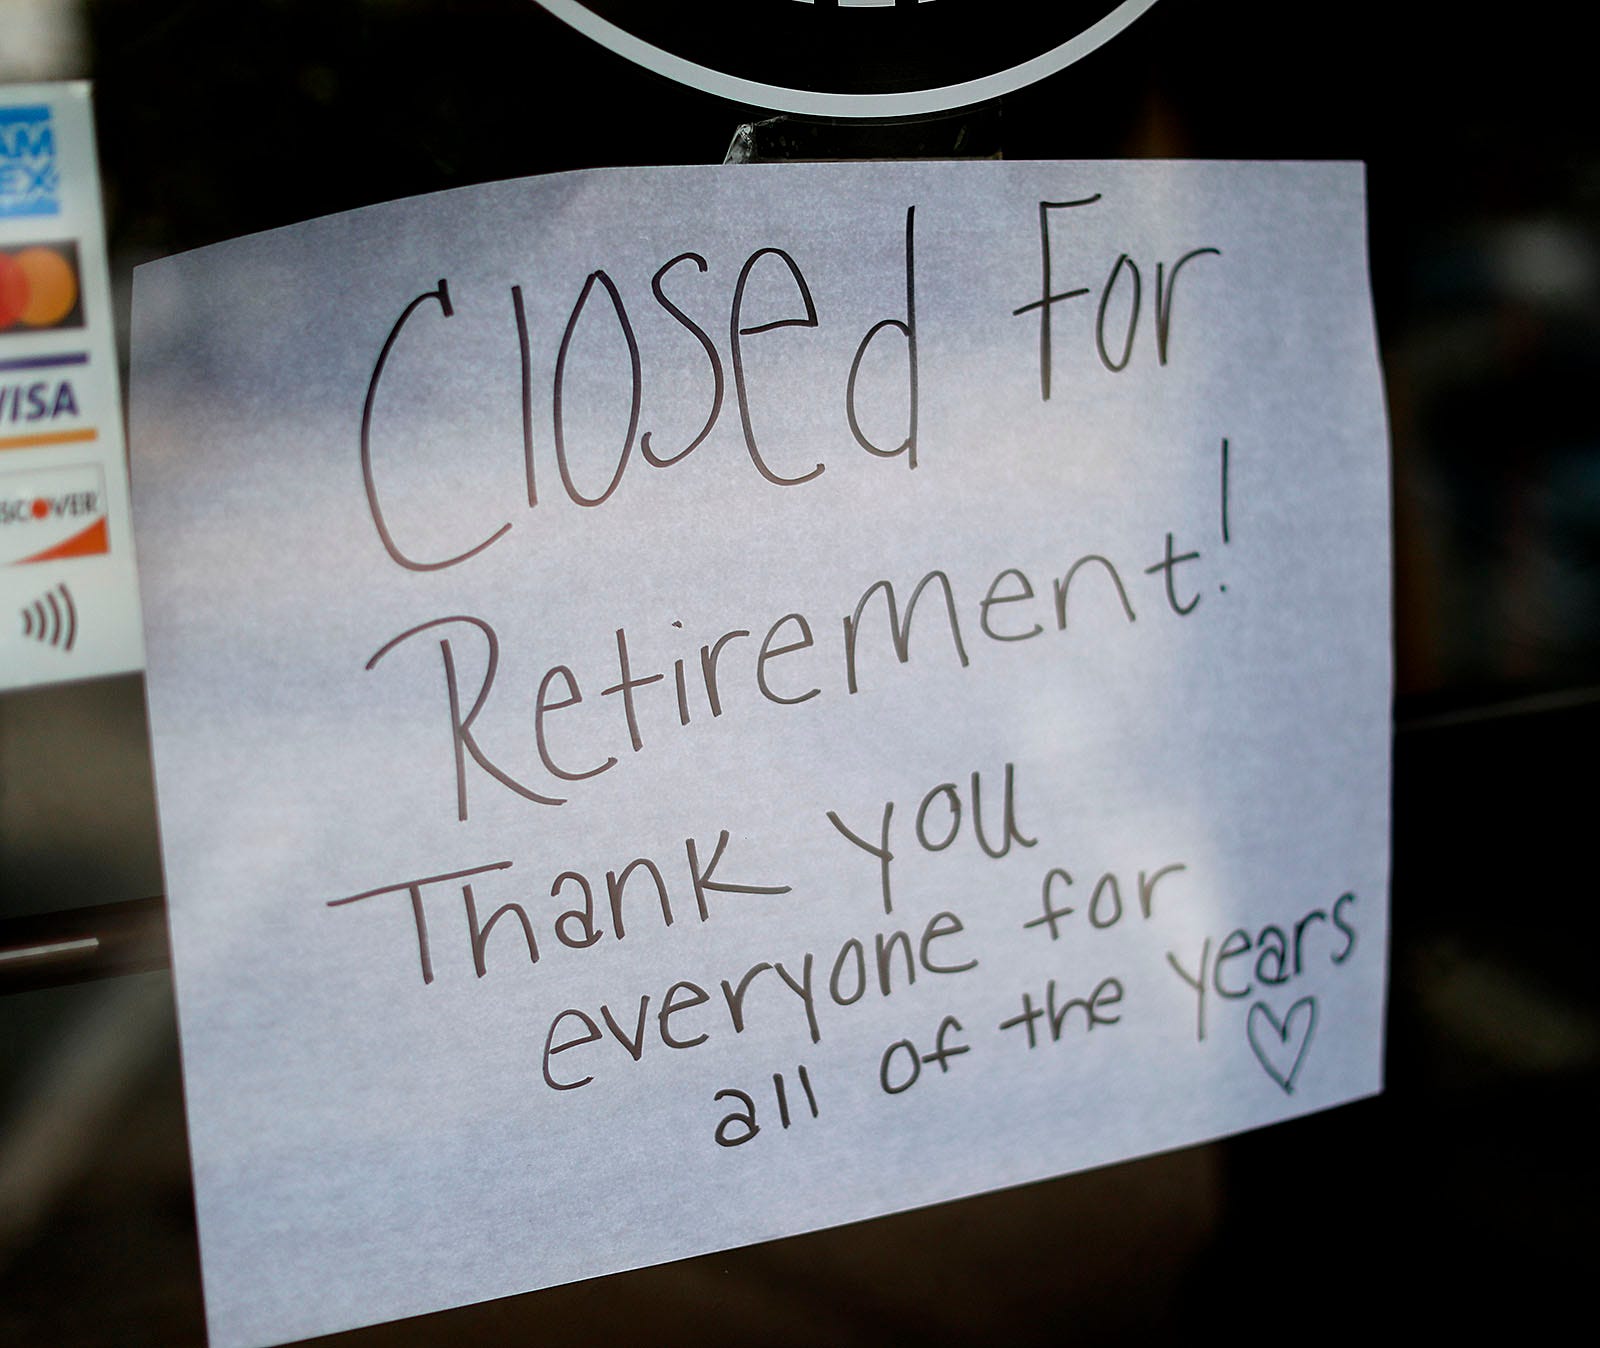 AM
EX
VISA
DISCOVER
Closed For
Retirement!
Thank you
everyone for
all of the years